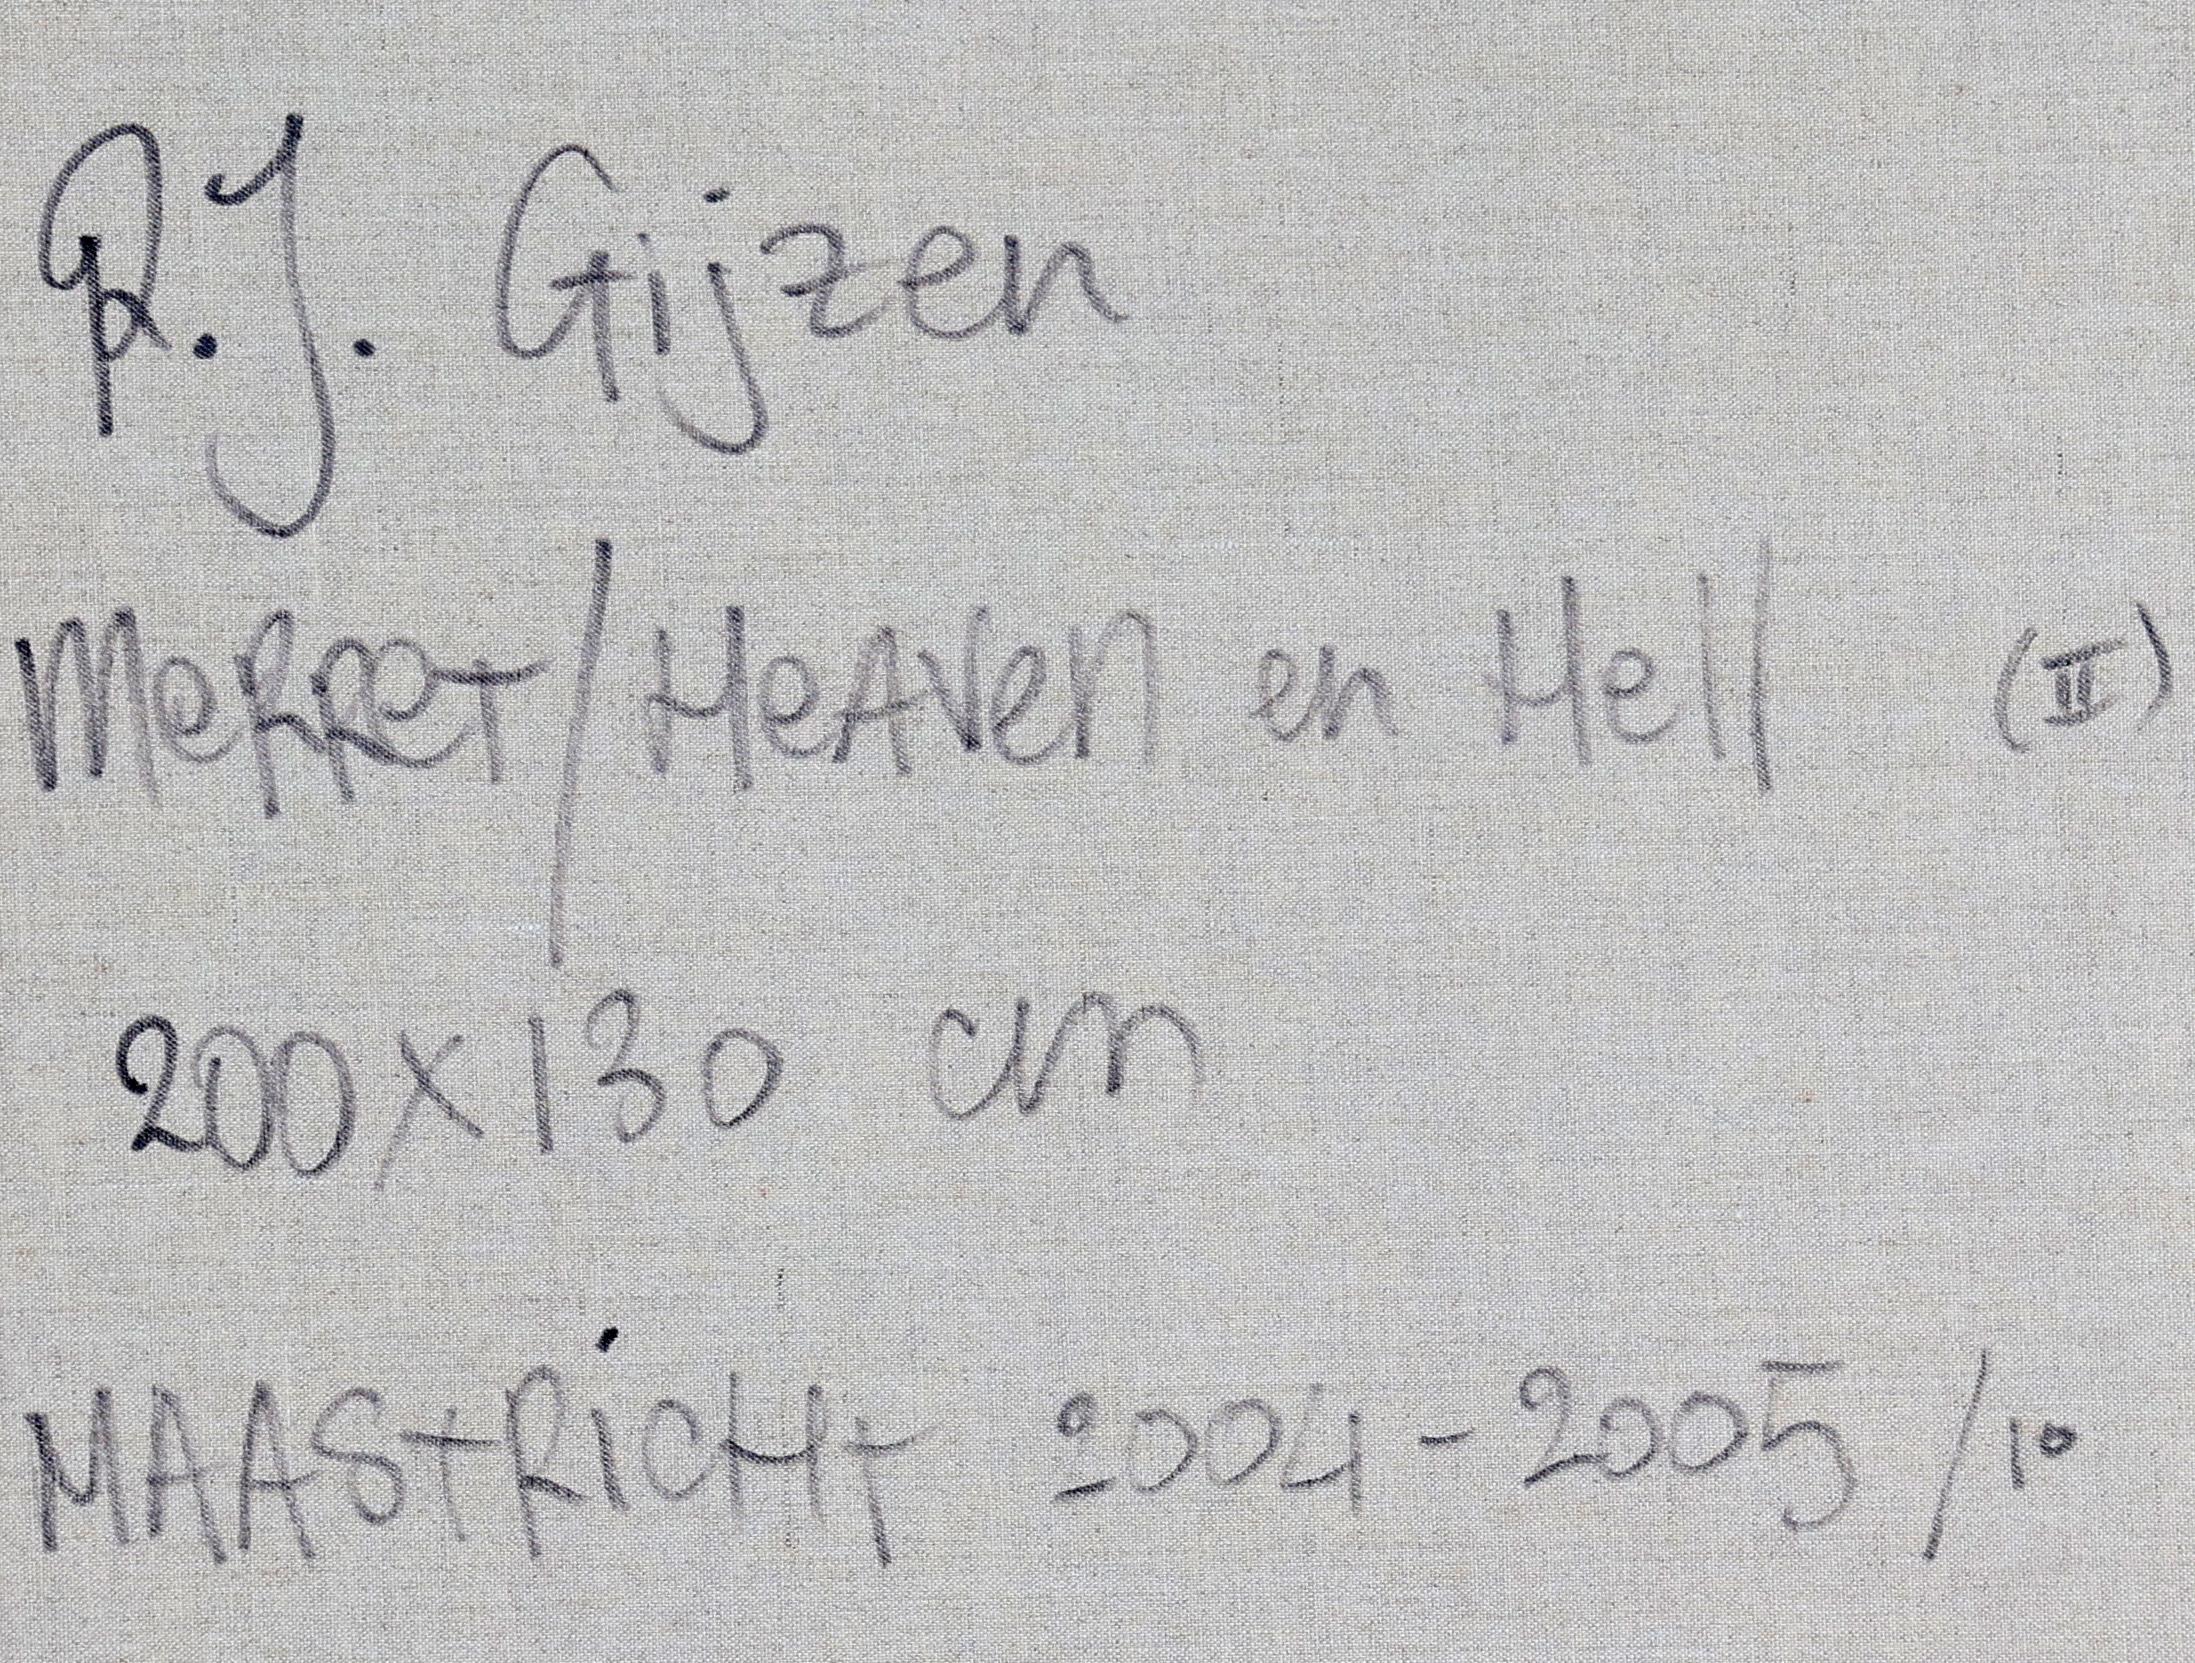 R.J. Gijzen
MeRReT/HeAVen en Hell (II)
200x130 cm
MAAStRiCHt 2004-2005/10